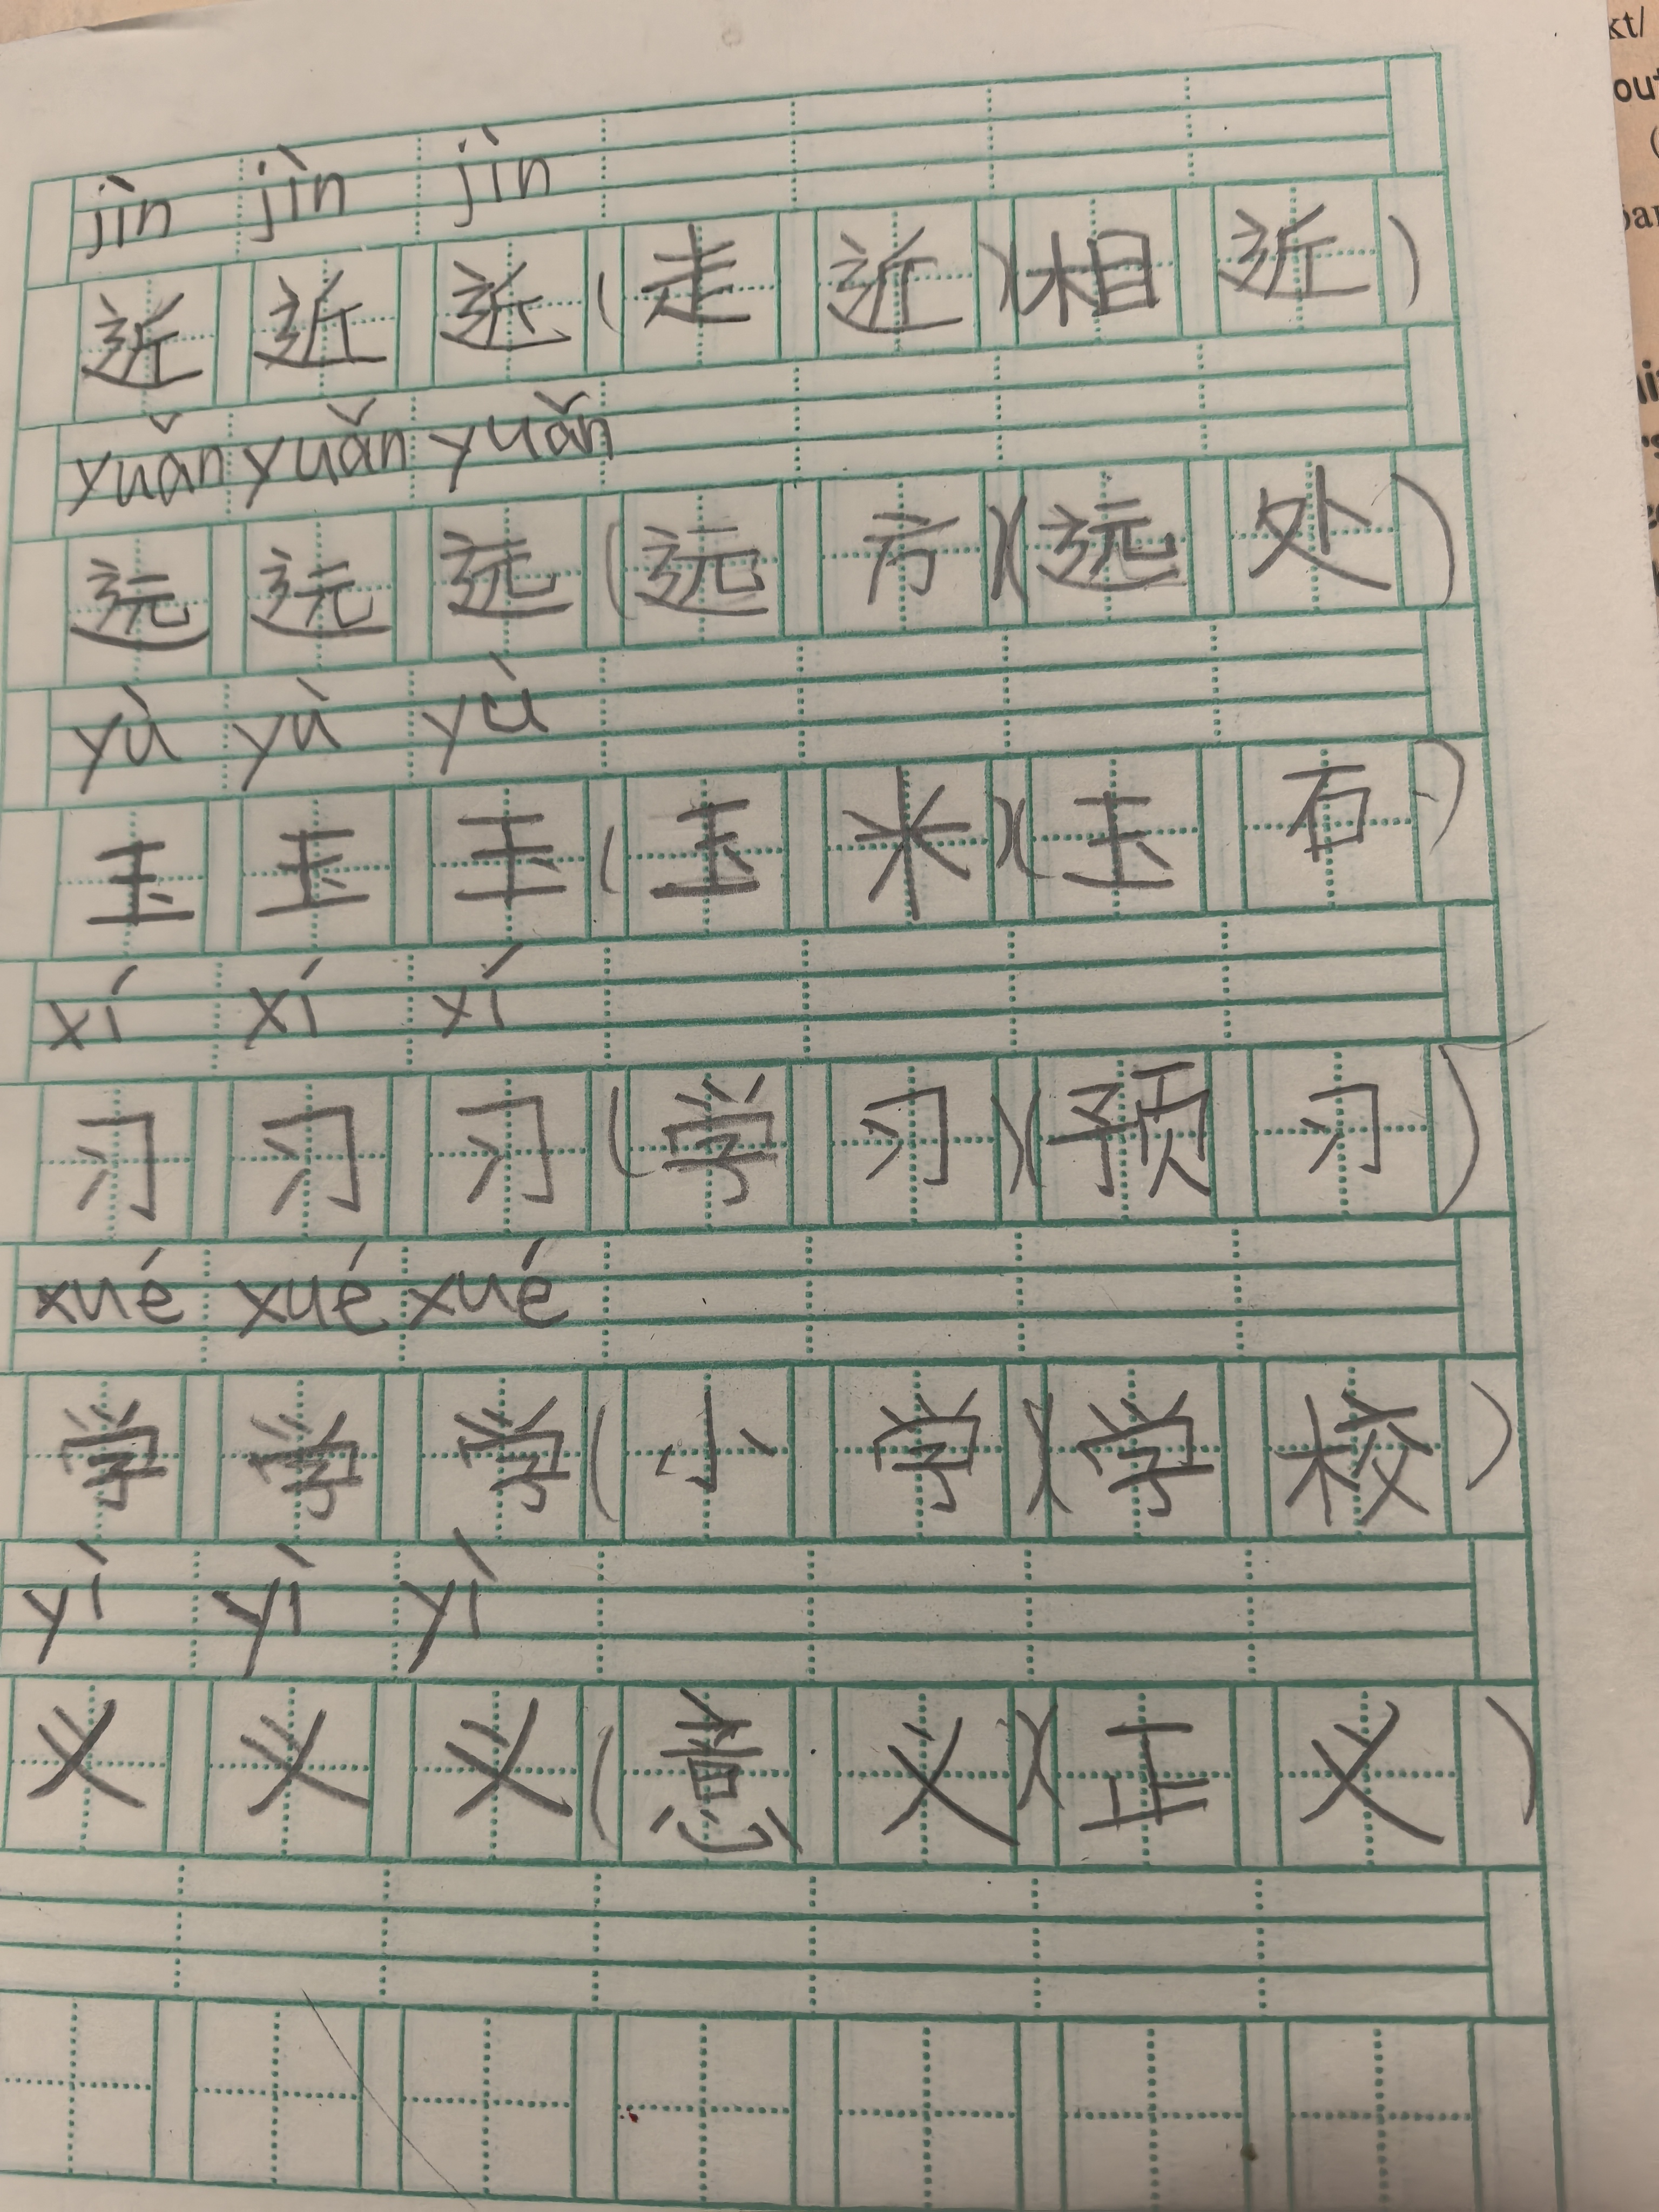 jìn jìn jìn
近 近 近 (走 近)(相 近)
yuǎn yuǎn yuǎn
远 远 远 (远 方)(远 处)
yù yù yù
玉 玉 玉 (玉 米)(玉 石)
xí xí xí
习 习 习 (学 习)(预 习)
xué xué xué
学 学 学 (小 学)(学 校)
yì yì yì
义 义 义 (意 义)(正 义)
kt/